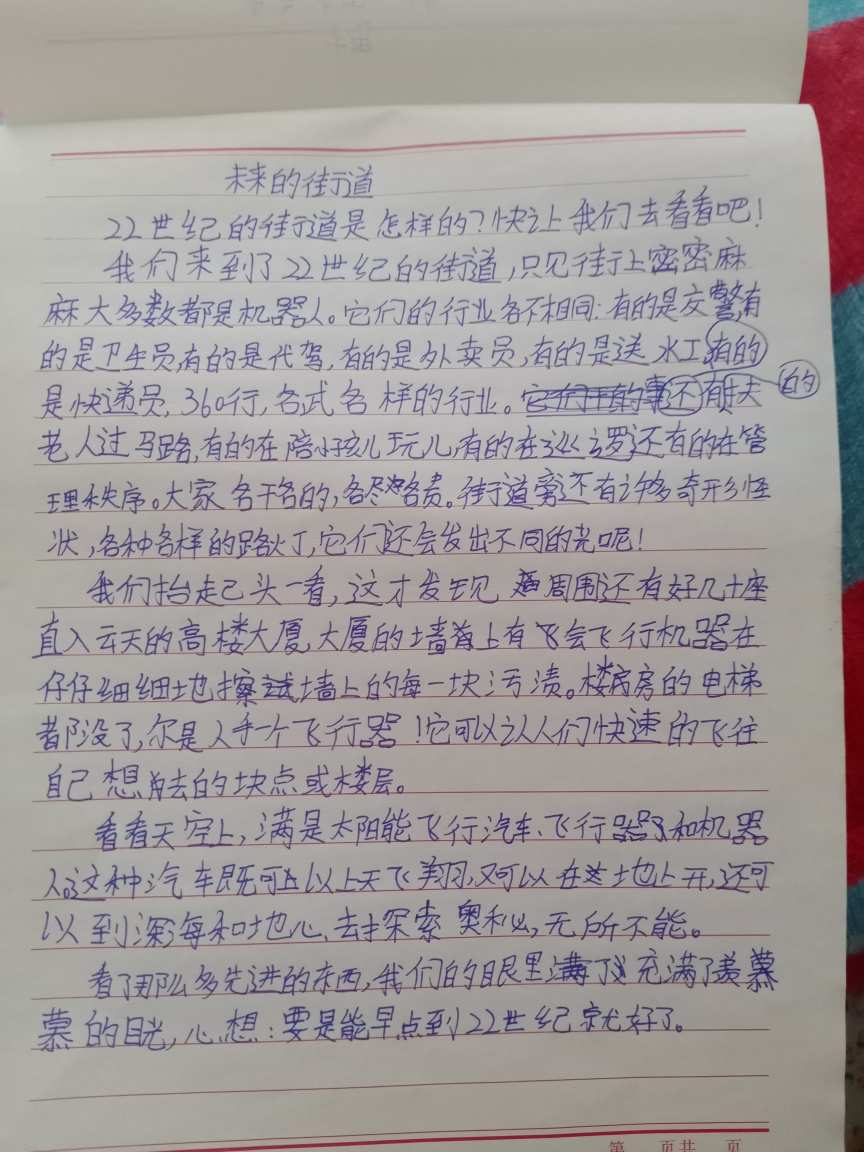 未来的街道
22世纪的街道是怎样的?快让我们去看看吧!
我们来到了22世纪的街道,只见街上密密麻
麻大多数都是机器人。它们的行业各不相同:有的是交警,有
的是卫生员,有的是代驾,有的是外卖员,有的是送水工,有的
是快递员,360行,各式各样的行业。还有扶 的
老人过马路,有的在陪小孩儿玩儿,有的在巡逻,还有的在管
理秩序。大家各干各的,各尽各责。街道旁还有许多奇形怪
状,各种各样的路灯,它们还会发出不同的光呢!
我们抬起头一看,这才发现周围还有好几十座
直入云天的高楼大厦,大厦的墙上有飞会飞行机器在
仔仔细细地擦拭墙上的每一块污渍。楼房的电梯
都没了,尔是人手一个飞行器!它可以让人们快速的飞往
自己想去的块点或楼层。
看看天空上,满是太阳能飞行汽车、飞行器和机器
人。这种汽车既可以上天飞翔,又可以在地上开,还可
以到深海和地心去探索奥秘,无所不能。
看了那么多先进的东西,我们的眼里充满了羡慕
慕的目光,心想:要是能早点到22世纪就好了。
第 页共 页